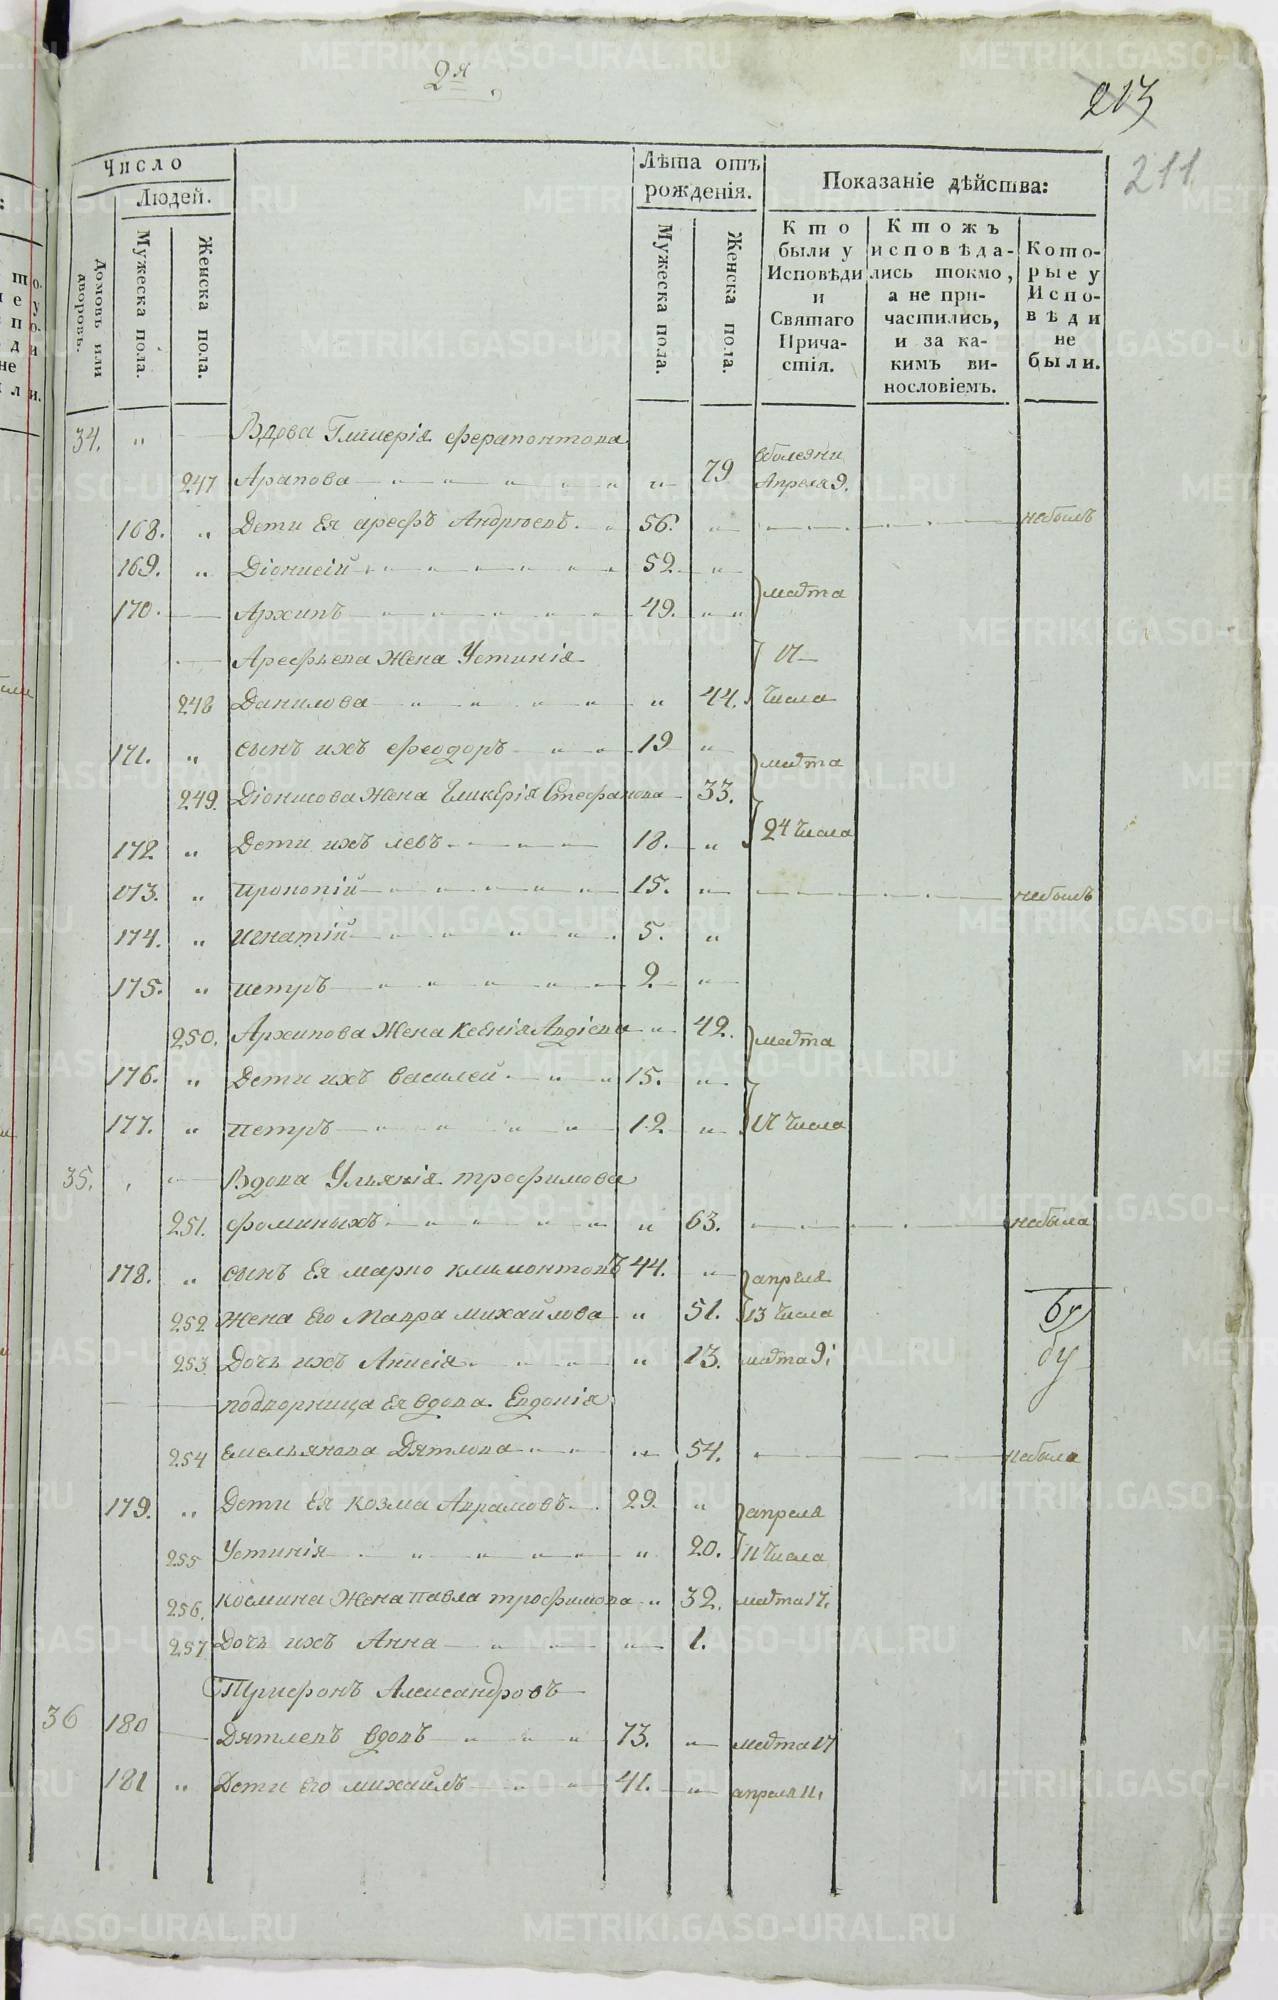 2я
213
211
Число
Людей.
Домовъ или дворовъ.
Мужеска пола.
Женска пола.
Лѣта отъ рожденія.
Мужеска пола.
Женска пола.
Показаніе дѣйства:
Кто были у Исповѣди и Святаго Причастія.
Ктожъ исповѣдались токмо, а не причастились, и за какимъ винословіемъ.
Которые у Исповѣди не были.
34. " Вдова Гликерія Ферапонтова
247 Арапова " 79 Апреля 9.
168. " Дети Ея Арефъ Андрюевъ. 56. " небылъ
169. " Діонисій 52. "
170. Архипъ 49. " марта
Арефьева Жена Устинія 17
248 Данилова " 44. числа
171. " сынъ ихъ Феодоръ 19 " марта
249. Діонисова Жена Гликерія Стефанова 33.
172 " Дети ихъ левъ 18. " 24 числа
173. " прокопій 15. " небылъ
174. " игнатій 5. "
175. " петръ 2. "
250. Архипова Жена Ксенія Авдіева " 42. марта
176. " Дети ихъ василей 15. "
177. " петръ 12 " 17 числа
35. Вдова Ульянія трофимова
251. Фоминыхъ " 63. небыла
178. " сынъ Ея марко климонтовъ 44. " апреля
252 Жена Его Мавра михайлова " 51. 13 числа
253 Дочь ихъ Анисія " 13. марта 9.
подворница Ея вдова Евдокія
254 Емельянова Дятлова " 54. небыла
179. " Дети Ея козма Аврамовъ 29. " апреля
255 Устинія " 20. 11 числа
256. космина Жена павла трофимова " 32. марта 17.
257 Дочь ихъ Анна " 1.
Трифонъ Александровъ
36 180 Дятлевъ вдовъ 73. " марта 17
181 " Дети Его михаилъ 41. " апреля 11.
METRIKI.GASO-URAL.RU